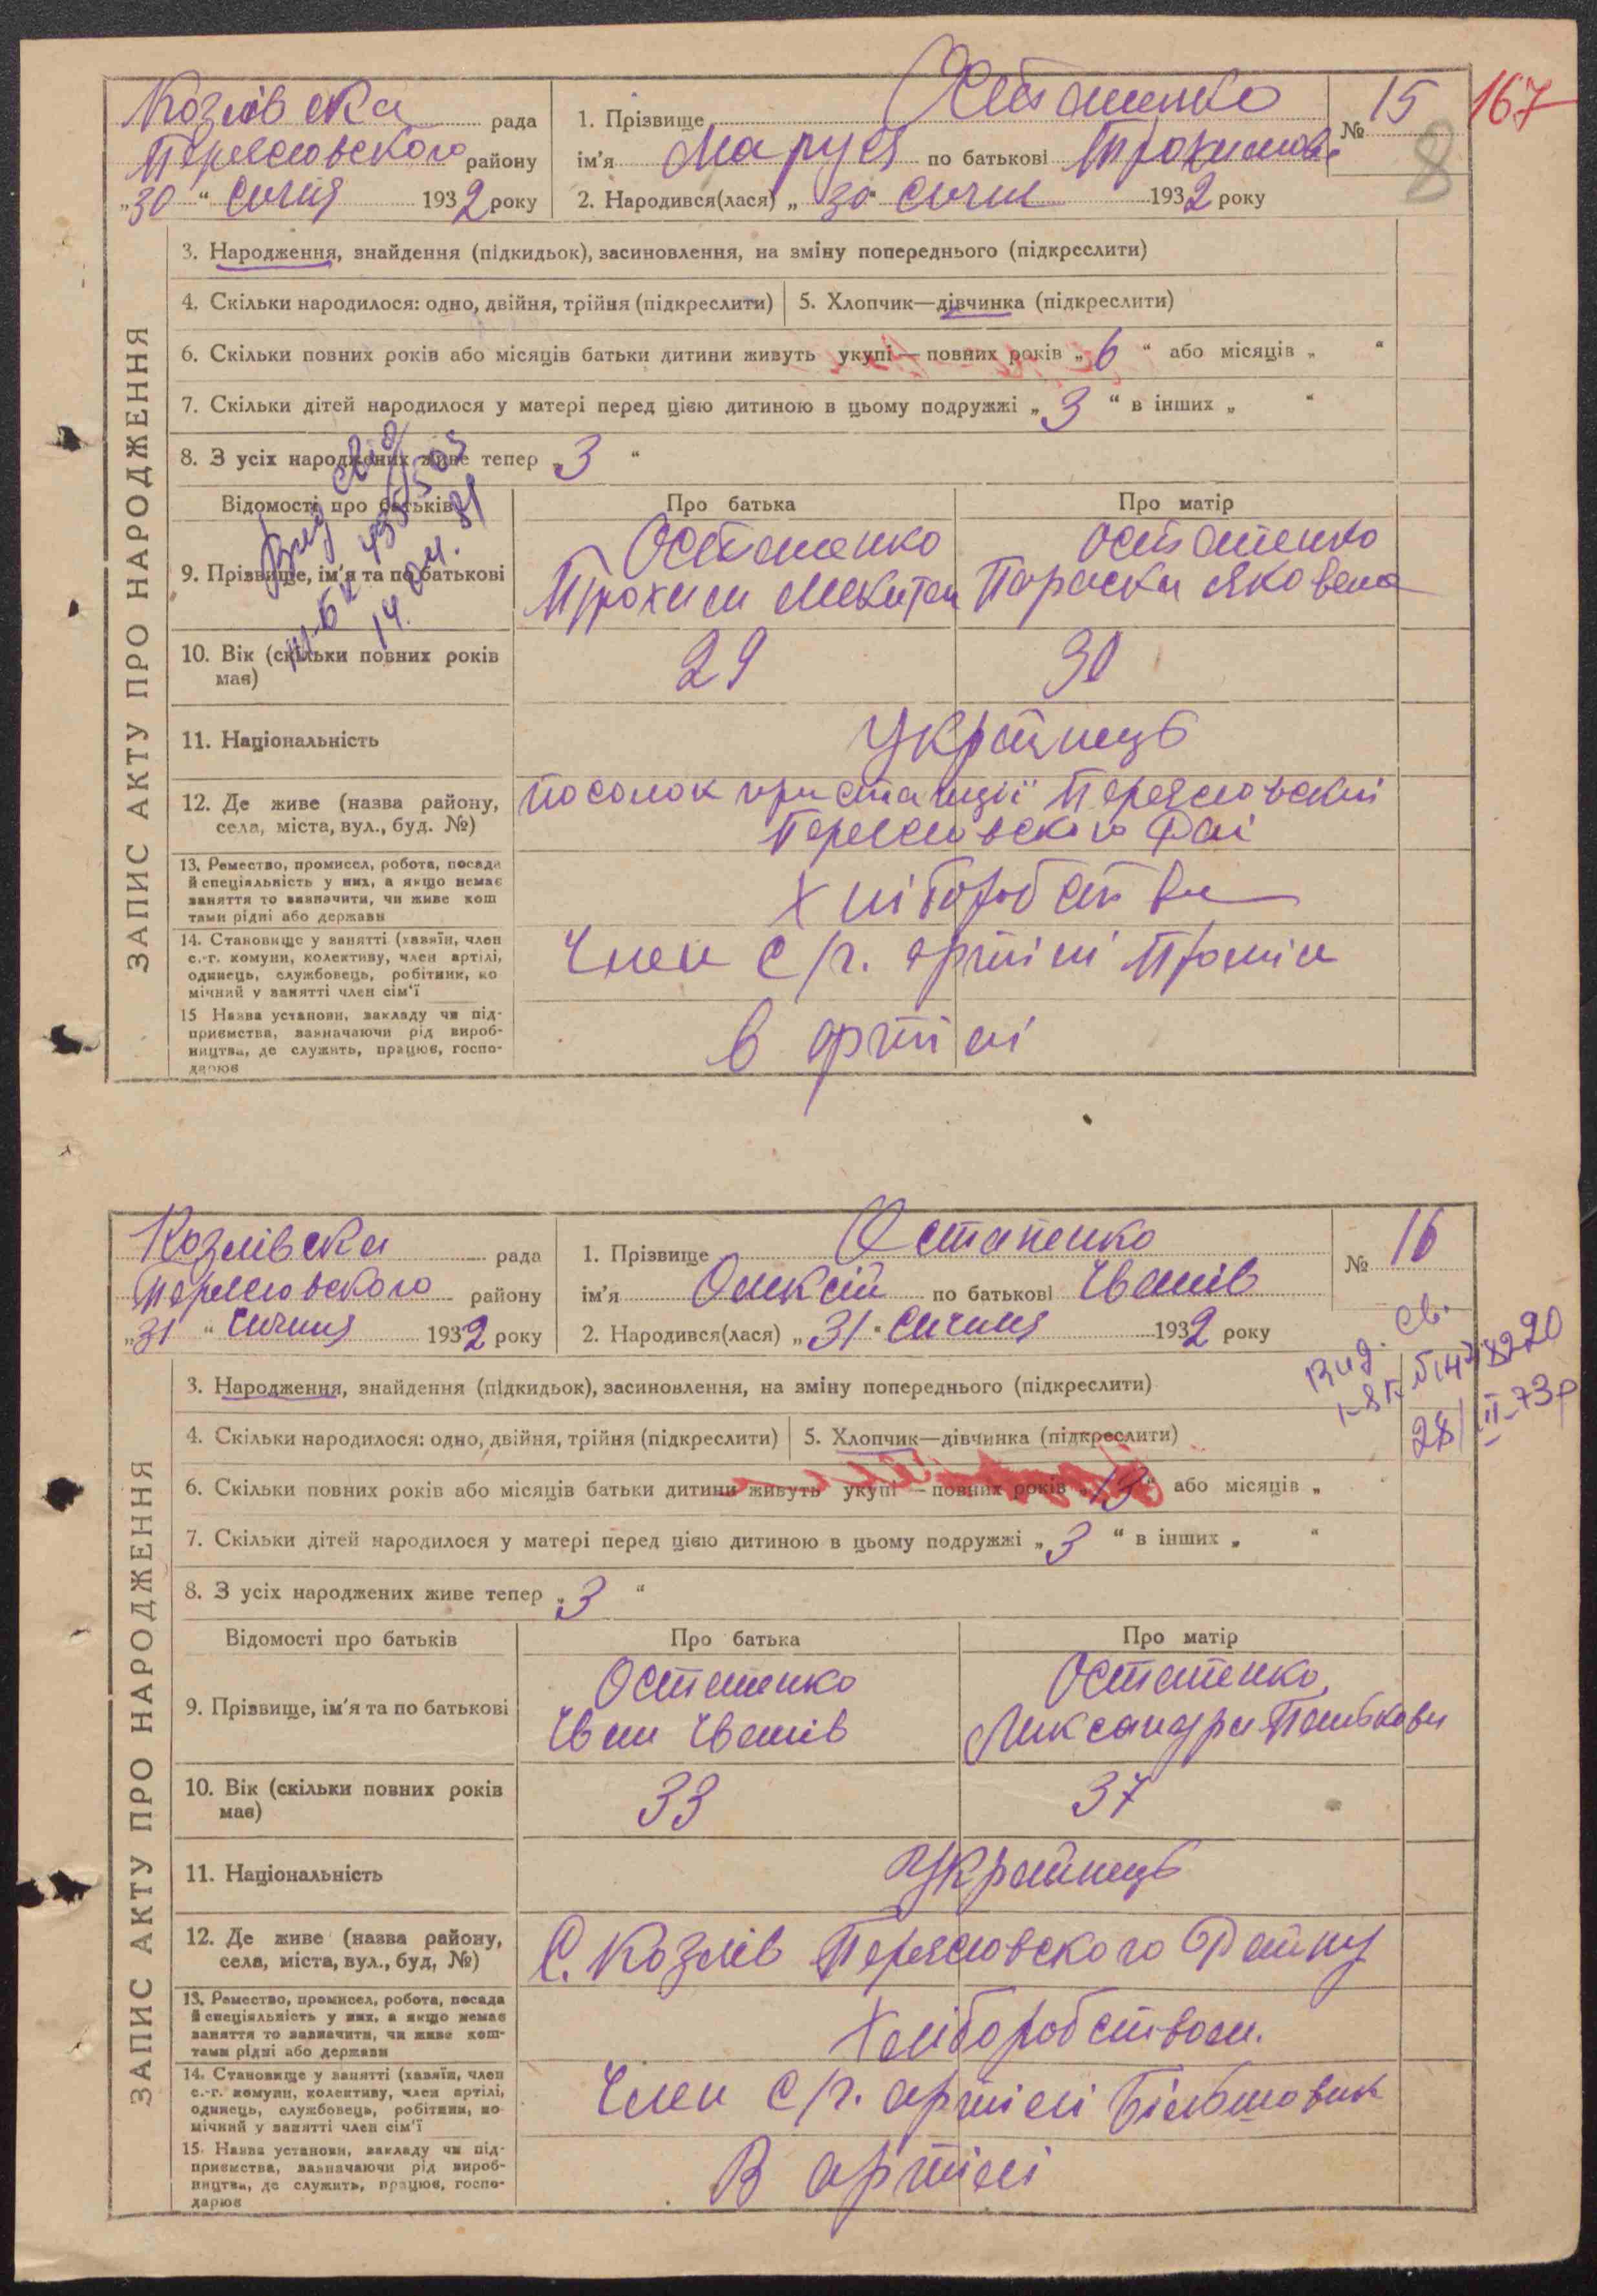 167
Козлівска рада
Переяловского району
„30“ Січня 1932 року
1. Прізвище Остапенко
ім'я Маруся по батькові Трохимовн
2. Народився(лася) „30“ Січня 1932 року
№ 15
8
ЗАПИС АКТУ ПРО НАРОДЖЕННЯ
3. Народження, знайдення (підкидьок), засиновлення, на зміну попереднього (підкреслити)
4. Скільки народилося: одно, двійня, трійня (підкреслити) 5. Хлопчик—дівчинка (підкреслити)
6. Скільки повних років або місяців батьки дитини живуть укупі—повних років „6“ або місяців „ “
7. Скільки дітей народилося у матері перед цією дитиною в цьому подружжі „3“ в інших „ “
8. З усіх народжених живе тепер „3“
Відомості про батьків Про батька Про матір
9. Прізвище, ім'я та по батькові
Остапенко
Трохим Микитов
Остапенко
Параска Яковена
14.04.81
10. Вік (скільки повних років
має)
29 30
11. Національність Українець
12. Де живе (назва району,
села, міста, вул., буд. №)
посолок при станциї Переяловский
Переяловского Рай
13. Ремество, промисел, робота, посада
й спеціяльність у них, а якщо немає
заняття то зазначити, чи живе кош
тами рідні або держави
Хліборобства
14. Становище у занятті (хазяїн, член
с.-г. комуни, колективу, член артілі,
одинець, службовець, робітник, по
мічний у занятті член сім'ї
Член с/г. артілі Промін
15 Назва установи, закладу чи під-
приємства, зазначаючи рід вироб-
ництва, де служить, працює, госпо-
дарює
в артілі
Козлівска рада
Переяловского району
„31“ Січня 1932 року
1. Прізвище Остапенко
ім'я Олексій по батькові Іванів
2. Народився(лася) „31“ Січня 1932 року
№ 16
Вид. св.
28/II-73р
ЗАПИС АКТУ ПРО НАРОДЖЕННЯ
3. Народження, знайдення (підкидьок), засиновлення, на зміну попереднього (підкреслити)
4. Скільки народилося: одно, двійня, трійня (підкреслити) 5. Хлопчик—дівчинка (підкреслити)
6. Скільки повних років або місяців батьки дитини живуть укупі—повних років „13“ або місяців „
7. Скільки дітей народилося у матері перед цією дитиною в цьому подружжі „3“ в інших „ “
8. З усіх народжених живе тепер „3“
Відомості про батьків Про батька Про матір
9. Прізвище, ім'я та по батькові
Остапенко
Іван Іванів
Остапенко
Лександра Панькова
10. Вік (скільки повних років
має)
33 37
11. Національність Українець
12. Де живе (назва району,
села, міста, вул., буд, №)
С. Козлів Переяловского Району
13. Ремество, промисел, робота, посада
й спеціяльність у них, а якщо немає
заняття то зазначити, чи живе кош-
тами рідні або держави
Хліборобством.
14. Становище у занятті (хазяїн, член
с.-г. комуни, колективу, член артілі,
одинець, службовець, робітник, по
мічний у занятті член сім'ї
Член с/г. артілі Більшовик
15. Назва установи, закладу чи під-
приємства, зазначаючи рід вироб-
ництва, де служить, працює, госпо-
дарює
В артілі